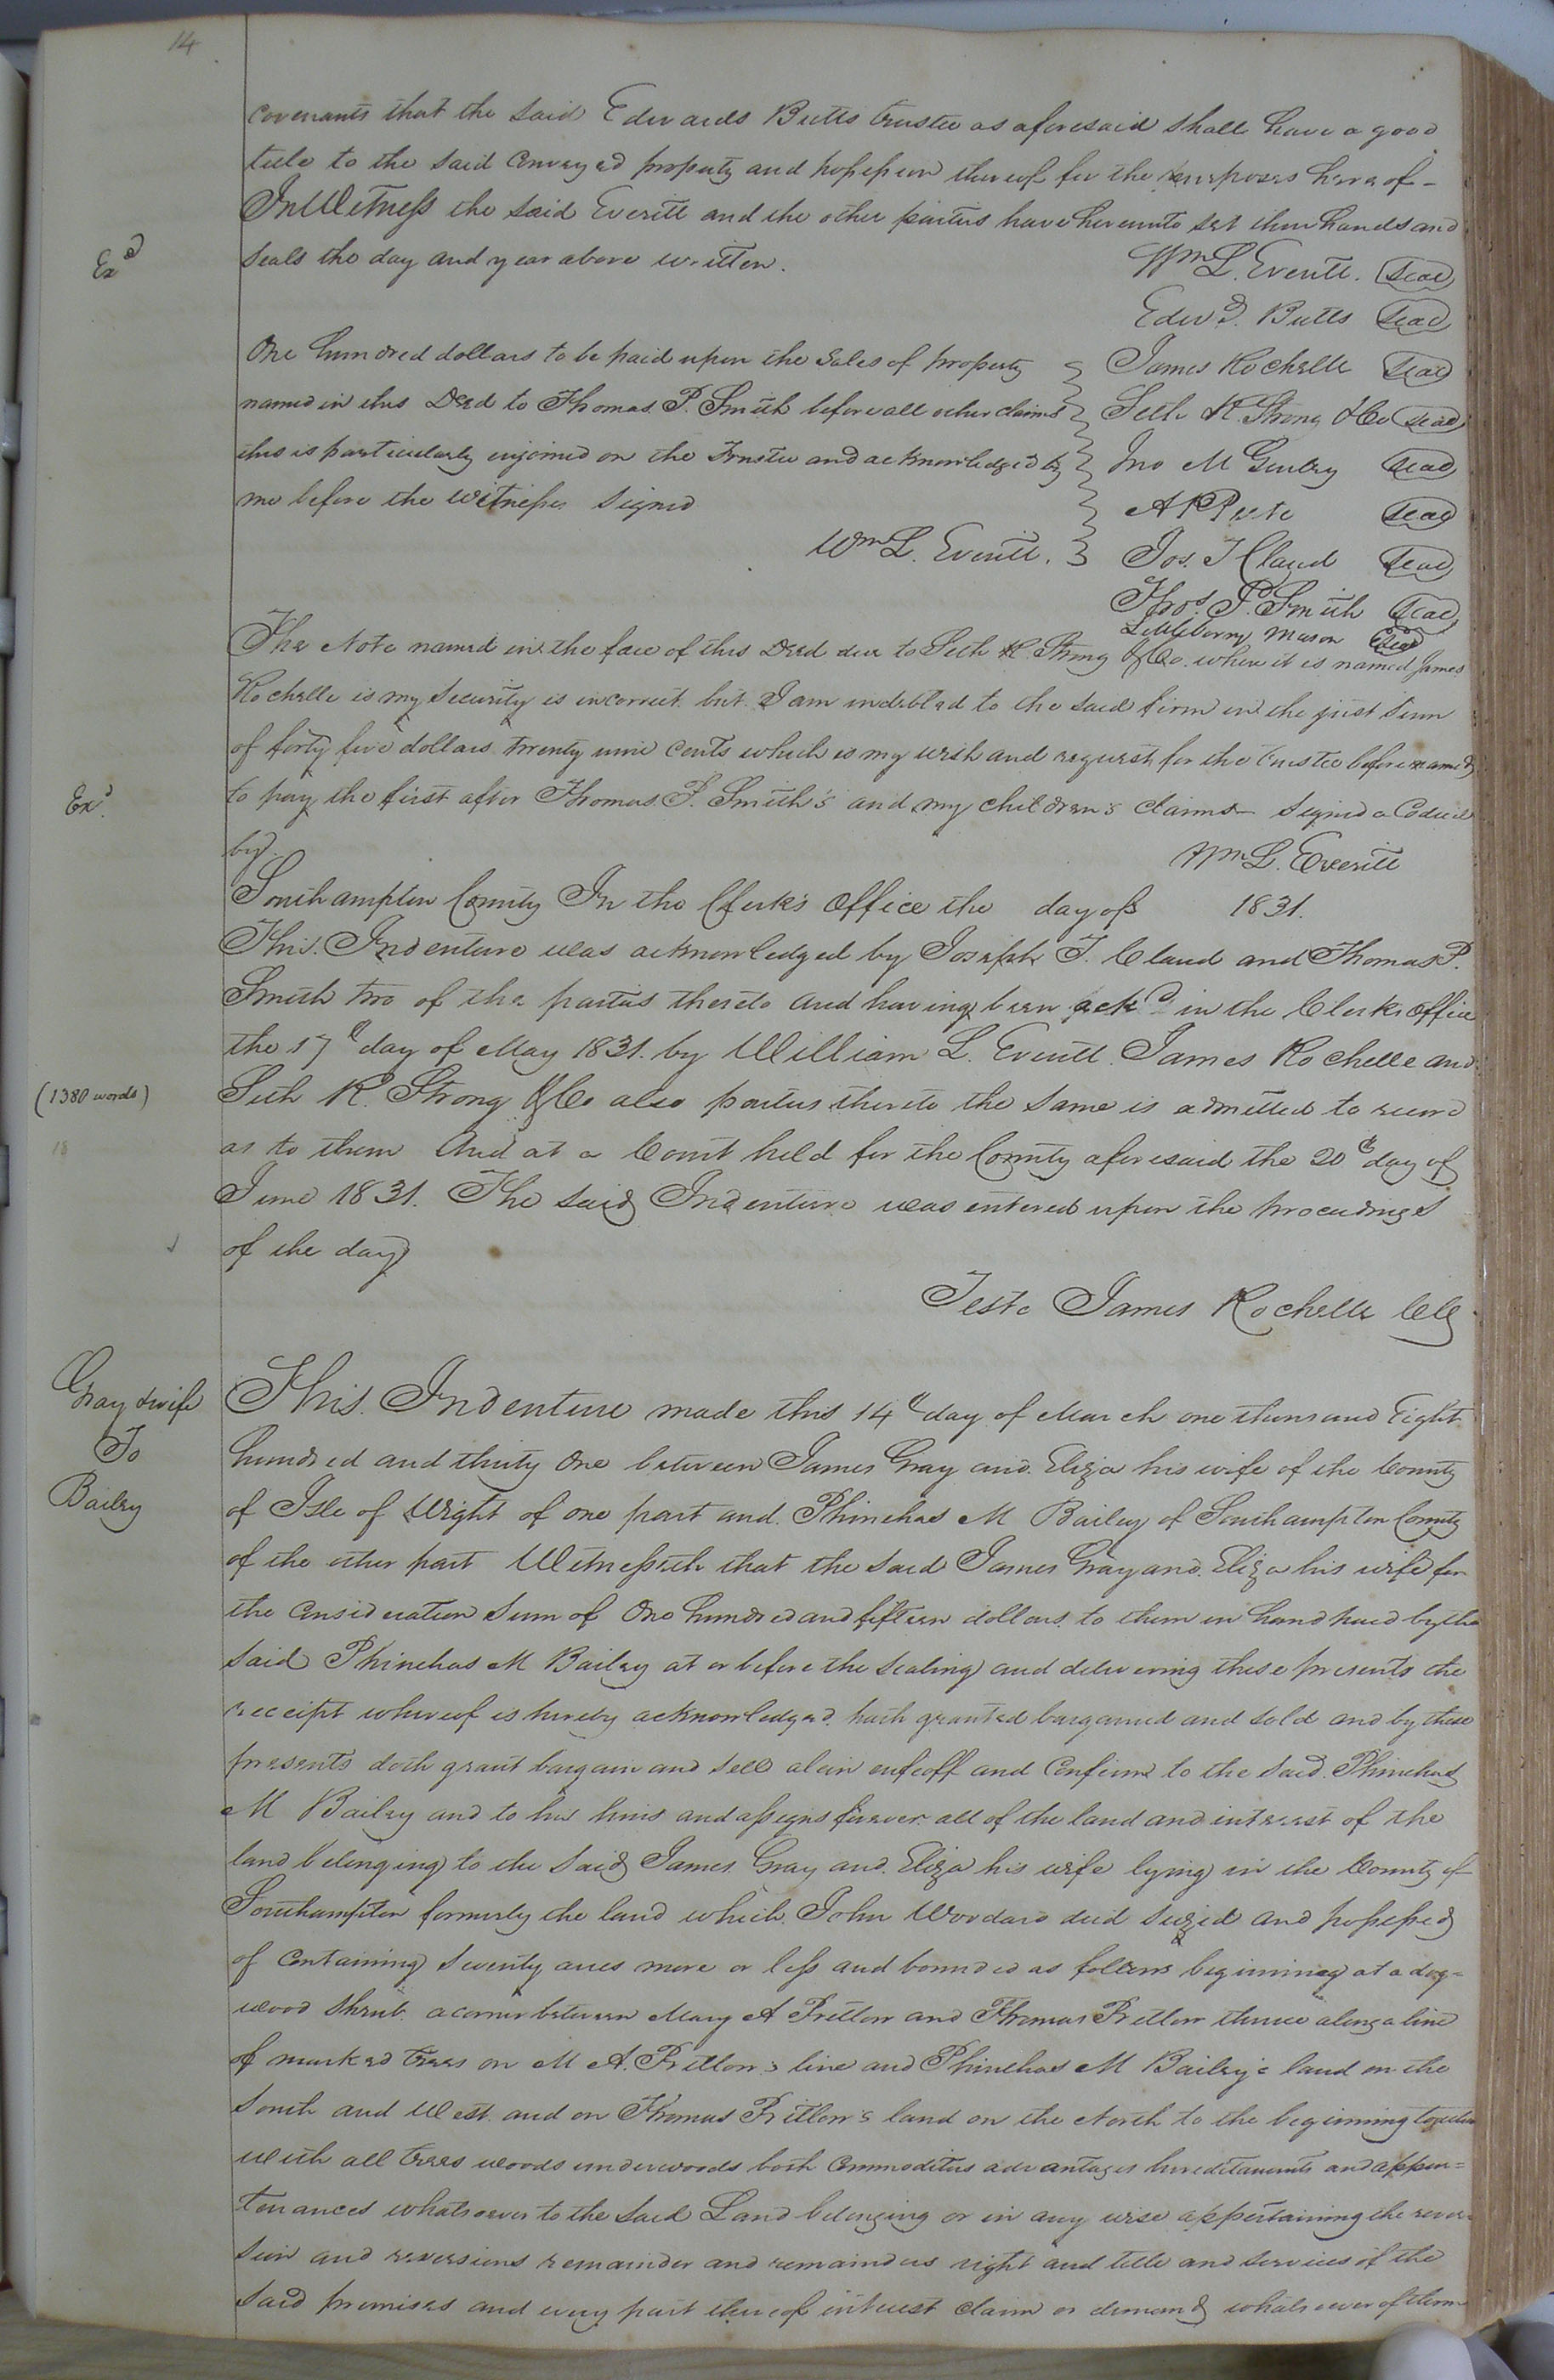 14
covenants that the said Edwards Butts trustee as aforesaid shall have a good
title to the said Conveyed property and possession thereof for the purposes hereof -
In Witness the said Everitt and the other parties have hereunto set their hands and
Exd
seals the day and year above written.
Wm L. Everitt. Seal
Edwd. Butts Seal
One hundred dollars to be paid upon the sales of property
James Rochelle Seal
named in this Deed to Thomas P. Smith before all other claims
Seth R. Strong & Co Seal
this is particularly enjoined on the Trustee and acknowledged by
Jno M Gurley Seal
me before the witnesses signed
Seal
Wm L. Everitt.
Jos. T Claud Seal
Thos. P. Smith Seal
Littleberry Mason Seal
The Note named in the face of this Deed due to Seth R. Strong & Co. where it is named James
Rochelle is my Security is incorrect but I am indebted to the said firm in the just Sum
of forty five dollars twenty nine Cents which is my wish and request for the trustee before named
Exd.
to pay the first after Thomas P. Smith's and my children's Claims - signed a Codicil
by.
Wm L. Everitt
Southampton County In the Clerk's Office the day of 1831.
This Indenture was acknowledged by Joseph T. Claud and Thomas P.
Smith two of the parties thereto and having been ackd in the Clerks Office
the 17th day of May 1831. by William L. Everitt James Rochelle and
(1380 words)
Seth R. Strong & Co also parties thereto the same is admitted to record
18
as to them And at a Court held for the County aforesaid the 20th day of
June 1831. The said Indenture was entered upon the proceedings
of the day
Teste James Rochelle CC
Gray & wife
To
Bailey
This Indenture made this 14th day of March one thousand Eight
hundred and thirty One between James Gray and Eliza his wife of the County
of Isle of Wright of one part and Phinehas M Bailey of Southampton County
of the other part Witnesseth that the said James Gray and Eliza his wife for
the Consideration Sum of One hundred and fifteen dollars to them in hand paid by the
said Phinehas M Bailey at or before the sealing and delivering these presents the
receipt whereof is hereby acknowledged hath granted bargained and sold and by these
presents doth grant bargain and sell alein enfeoff and Confirm to the said Phinehas
M Bailey and to his heirs and assigns forever all of the land and interest of the
land belonging to the said James Gray and Eliza his wife lying in the County of
Southampton formerly the land which John Woodard died seized and possessed
of Containing Seventy acres more or less and bounded as follows beginning at a dog=
wood Shrub a corner between Mary A Pretlow and Thomas Pretlow thence along a line
of marked trees on M A. Pretlow's line and Phinehas M Bailey's land on the
South and West and on Thomas Pretlow's land on the North to the beginning together
with all trees woods underwoods both Commodities advantages hereditaments and appur=
tenances whatsoever to the said Land belonging or in any wise appertaining the rever=
sion and reversions remainder and remainders right and title and services of the
said premises and every part thereof interest claim or demand whatsoever of them